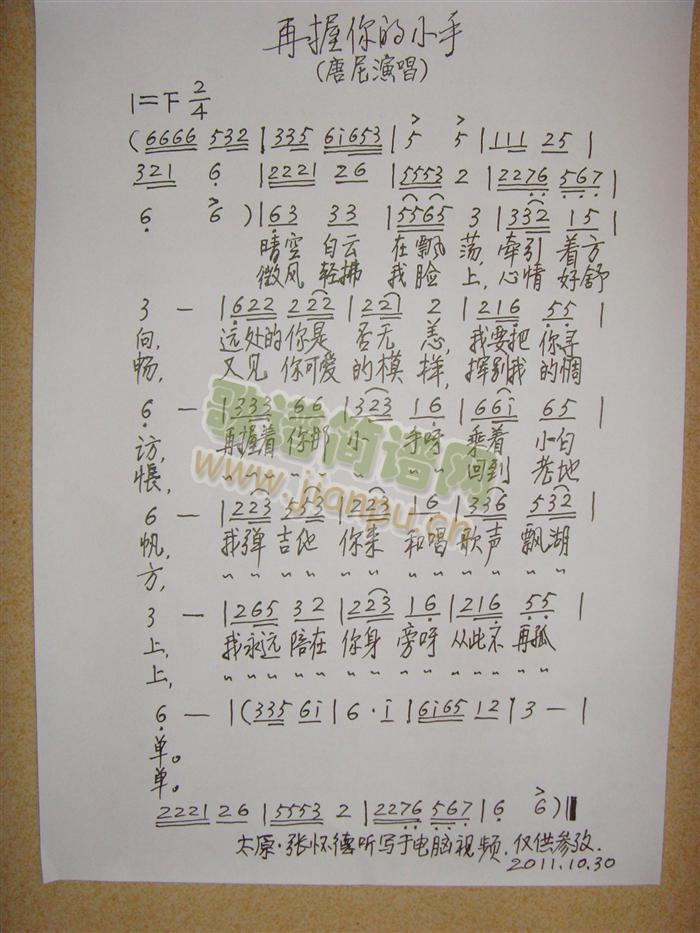 再握你的小手
(唐尼演唱)
1=F 2/4
(6666 532 | 335 6i653 | 5 5 | 111 25 |
321 6 | 2221 26 | 5553 2 | 2276 567 |
6 6 ) | 63 33 | 5565 3 | 332 15 |
晴空 白云 在飘 荡, 牵引 着方
微风 轻拂 我脸 上, 心情 好舒
3 — | 622 222 | 221 2 | 216 55 |
向, 远处的你是 否无 恙, 我要把 你寻
畅, 又见 你可爱 的模 样, 挥别我 的惆
6 — | 333 66 | 323 16 | 66i 65 |
访, 再握着 你那 小 手呀 乘着 小白
怅, 〃 〃 〃 〃 〃 〃 〃 回到 老地
6 — | 223 553 | 223 16 | 336 532 |
帆, 我弹 吉他 你来 和唱 歌声 飘湖
方, 〃 〃 〃 〃 〃 〃 〃 〃 〃 〃
3 — | 265 32 | 223 16 | 216 55 |
上, 我永远 陪在 你身 旁呀 从此不 再孤
上, 〃 〃 〃 〃 〃 〃 〃 〃 〃 〃
6 — | (335 6i | 6 · i | 6i65 12 | 3 — |
单。
单。
2221 26 | 5553 2 | 2276 567 | 6 6 )‖
太原·张怀德听写于电脑视频.仅供参改.
2011.10.30
歌谱简谱网
www.jianpu.cn